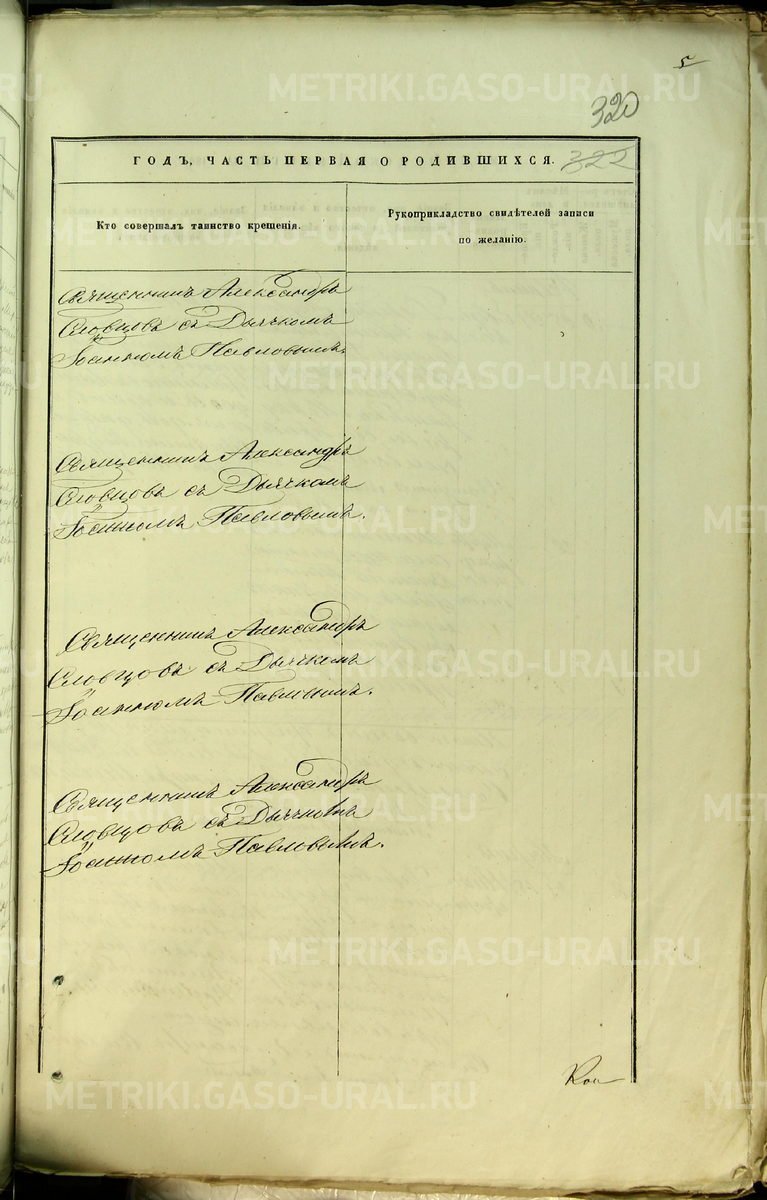 5
320
ГОДЪ, ЧАСТЬ ПЕРВАЯ О РОДИВШИХСЯ.
322
Кто совершалъ таинство крещенія.
Рукоприкладство свидѣтелей записи
по желанію.
Священникъ Александръ
Словцовъ съ Дьячкомъ
Іоанномъ Павловымъ.
Священникъ Александръ
Словцовъ съ Дьячкомъ
Іоанномъ Павловымъ.
Священникъ Александръ
Словцовъ съ Дьячкомъ
Іоанномъ Павловымъ.
Священникъ Александръ
Словцовъ съ Дьячкомъ
Іоанномъ Павловымъ.
METRIKI.GASO-URAL.RU
METRIKI.GASO-URAL.RU
METRIKI.GASO-URAL.RU
METRIKI.GASO-URAL.RU
METRIKI.GASO-URAL.RU
METRIKI.GASO-URAL.RU
METRIKI.GASO-URAL.RU
METRIKI.GASO-URAL.RU